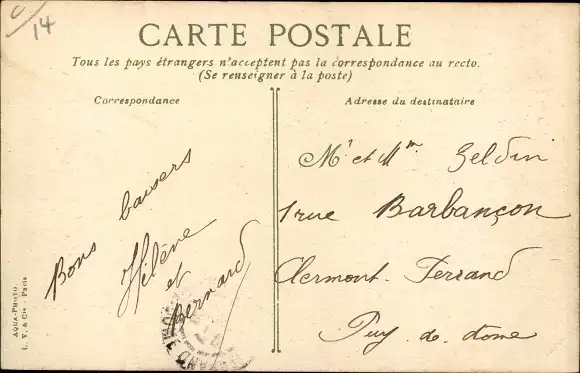 14
CARTE POSTALE
Tous les pays étrangers n'acceptent pas la correspondance au recto.
(Se renseigner à la poste)
Correspondance
Bons baisers
Hélène
et
Bernard
AQUA-PHOTO
L. V. & Cie - Paris
Adresse du destinataire
Mr et Mme Geldin
1 rue Barbançon
Clermont-Ferrand
Puy-de-dome